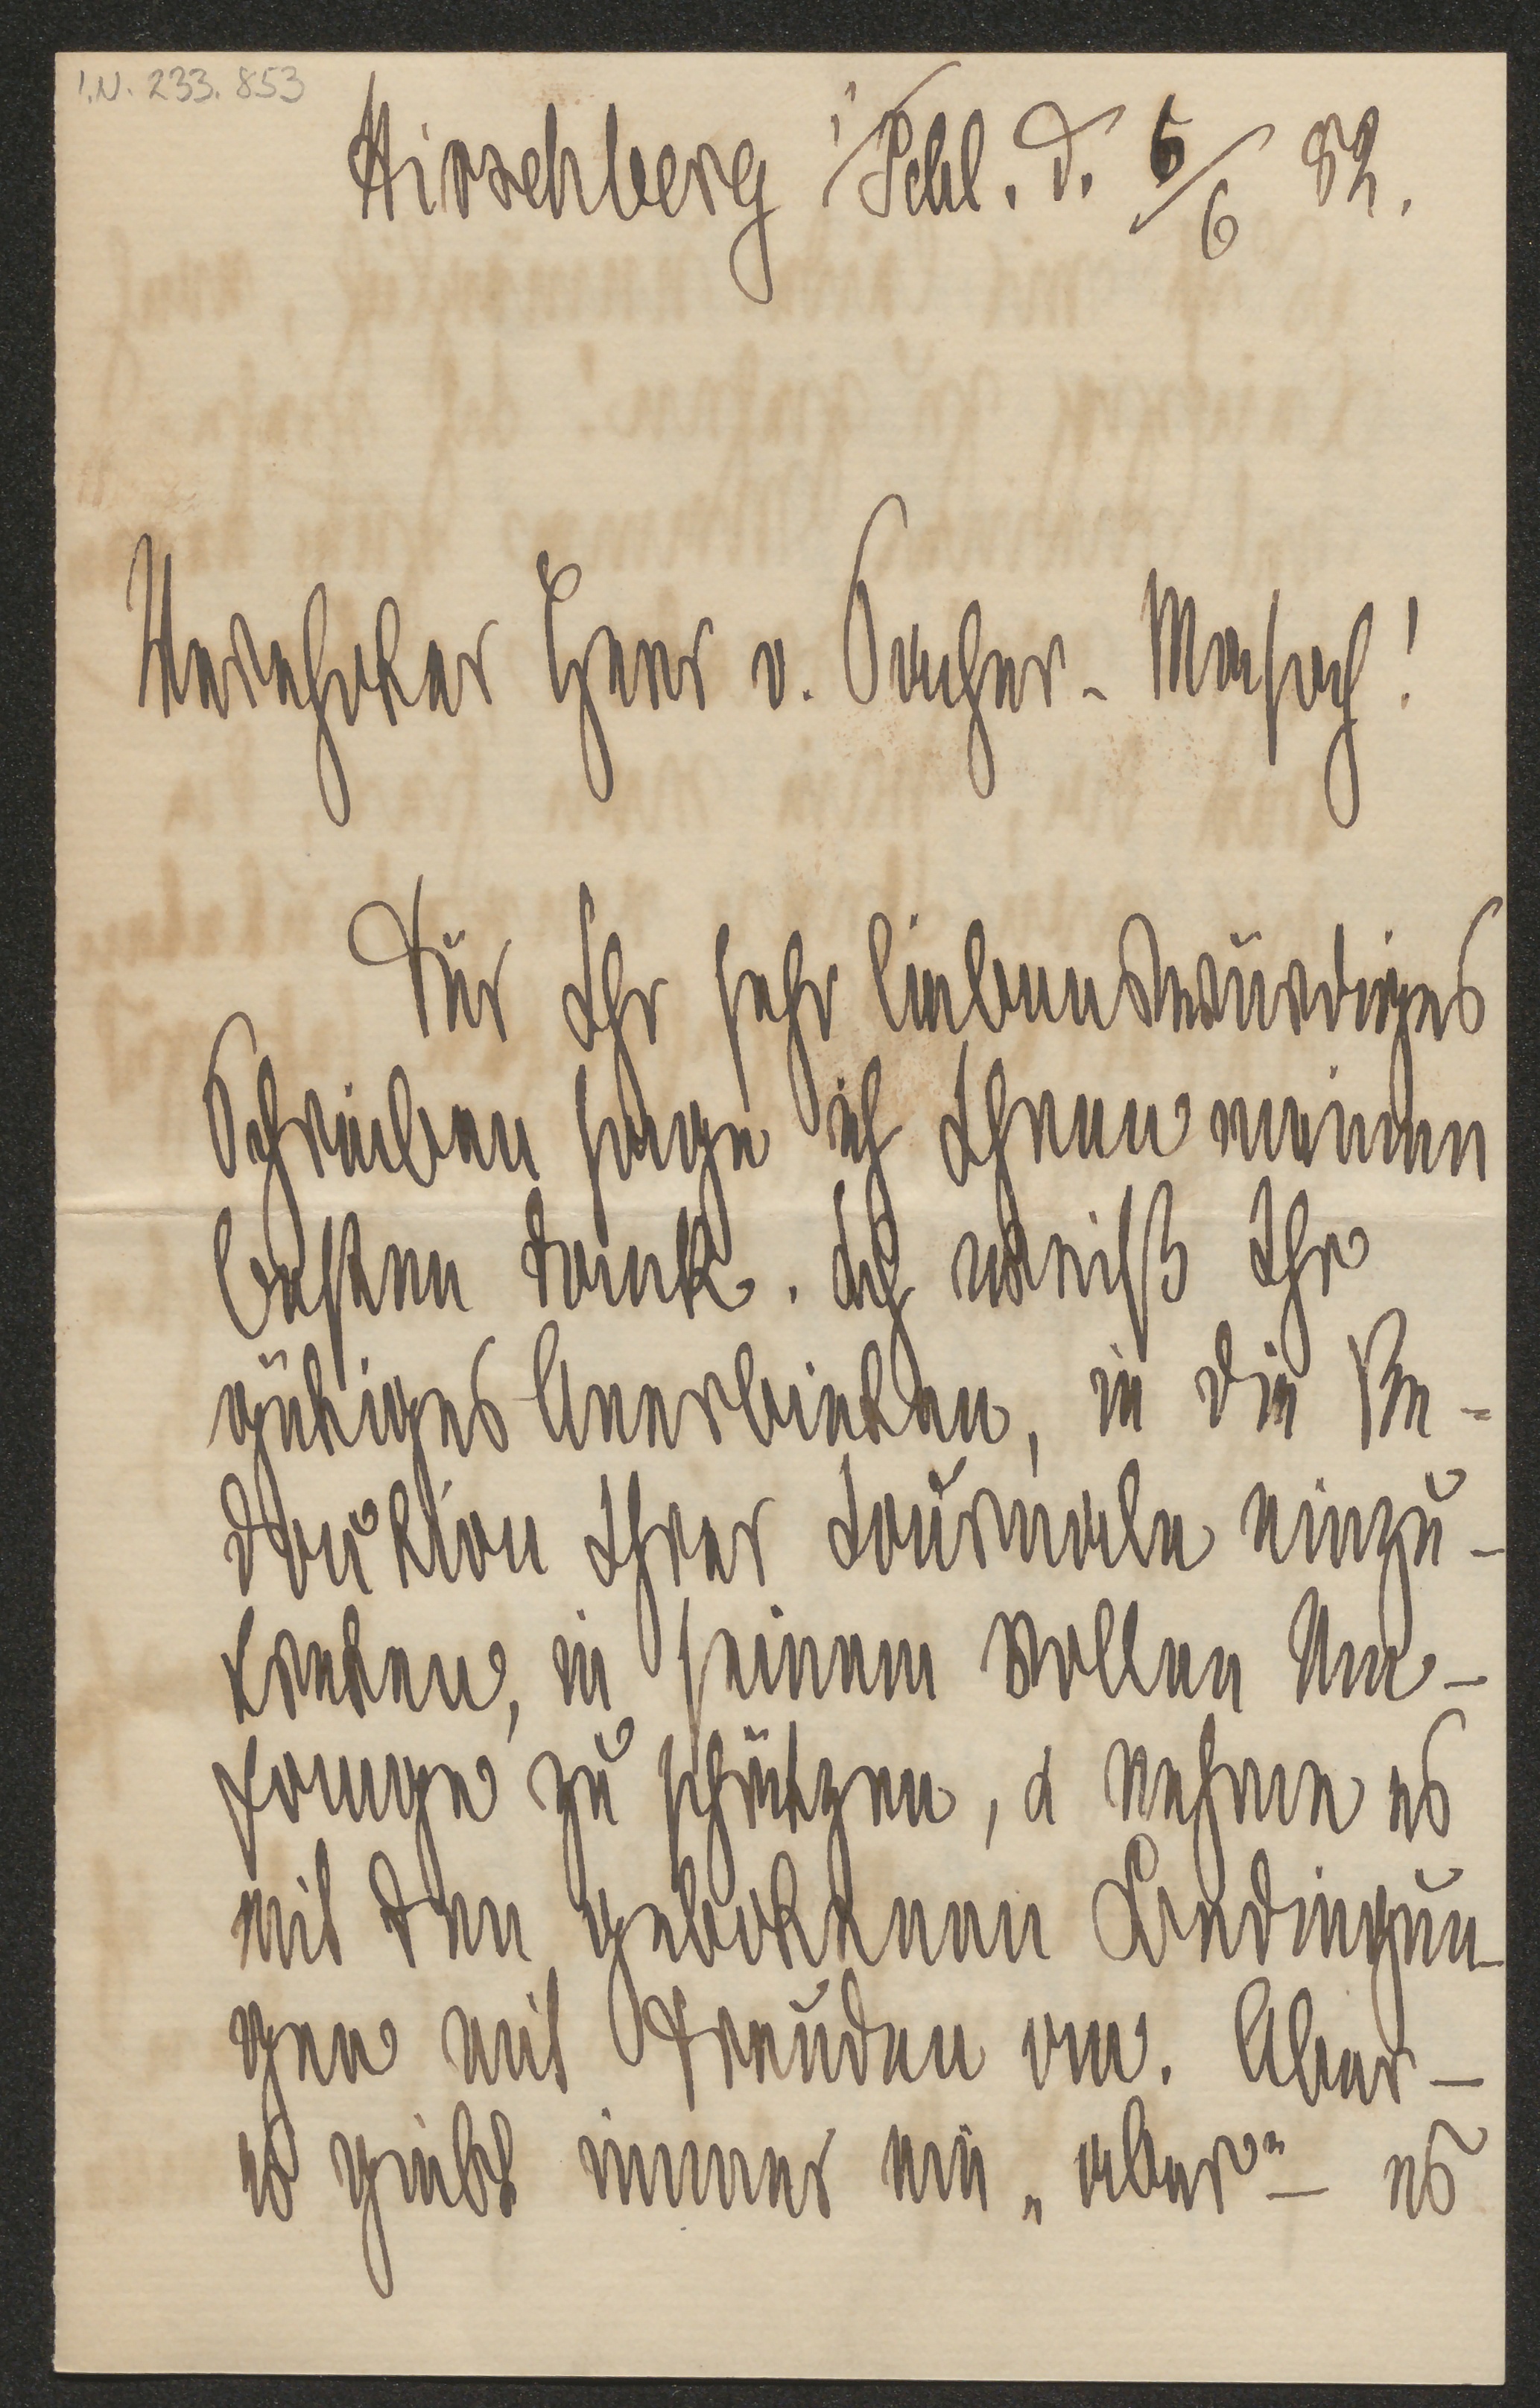 I.N. 233.853
Hirschberg i/Schl. d. 5/6 82.
Verehrter Herr v. Sacher-Masoch!
Für Ihr sehr liebenswürdiges
Schreiben sage ich Ihnen meinen
besten Dank. Ich weiß Ihr
gütiges Anerbieten, in die Re-
daktion Ihrer Journale einzu-
treten, in seinem vollen Um-
fange zu schätzen, & nehme es
mit den gebotenen Bedingun-
gen mit Freuden an. Aber –
es giebt immer ein „aber“ – es